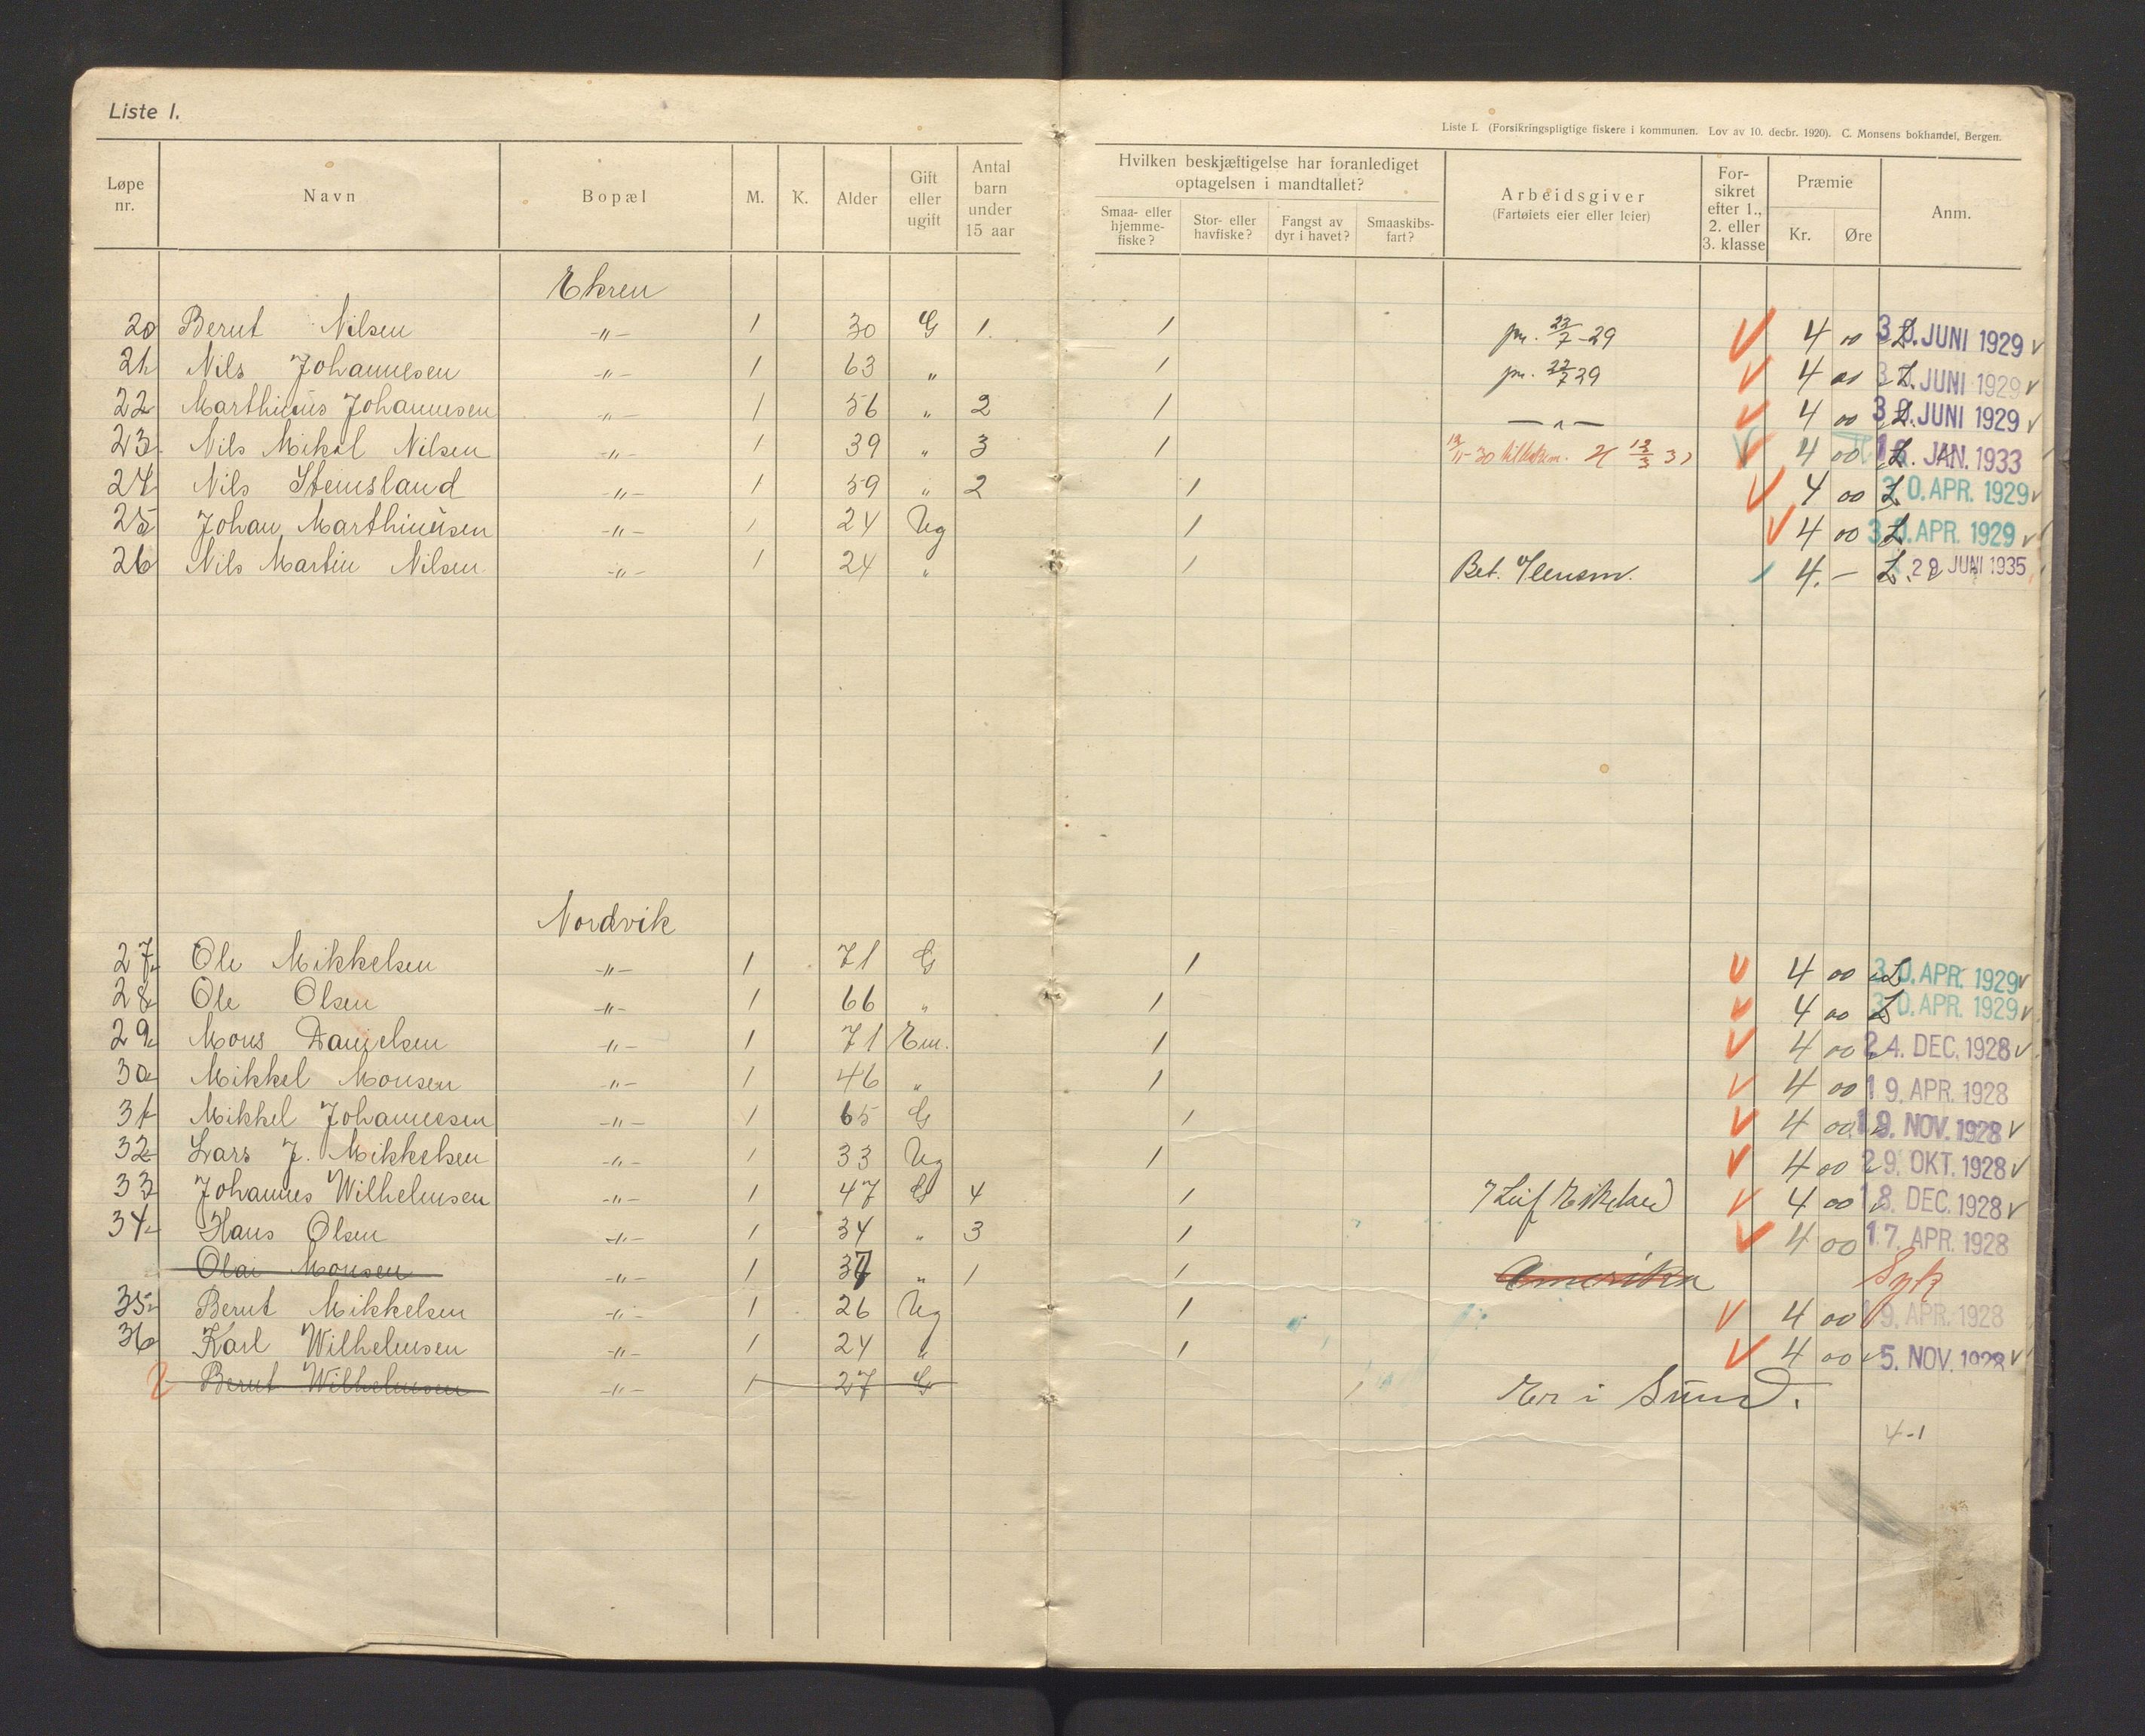 Liste 1.
Liste 1. (Forsikringspligtige fiskere i kommunen. Lov av 10. decbr. 1920). C. Monsens bokhandel, Bergen.
Løpe nr. Navn Bopæl M. K. Alder Gift eller ugift Antal barn under 15 aar Hvilken beskjæftigelse har foranlediget optagelsen i mandtallet? Smaa- eller hjemmefiske? Stor- eller havfiske? Fangst av dyr i havet? Smaaskibsfart? Arbeidsgiver (Fartøiets eier eller leier) Forsikret efter 1., 2. eller 3. klasse Præmie Kr. Øre Anm.
Ekren
20 Bernt Nilsen -"- 1 30 G 1. 1 pr. 22/7-29 V 4 00 30. JUNI 1929 v
21 Nils Johannesen -"- 1 63 " 1 pr. 22/7 29 V 4 00 30. JUNI 1929 v
22 Marthinus Johannesen -"- 1 56 " 2 1 -"- V 4 00 30. JUNI 1929 v
23 Nils Mikal Nilsen -"- 1 39 " 3 1 V 4 00 JAN. 1933
24 Nils Steinsland -"- 1 59 " 2 1 V 4 00 30. APR. 1929 v
25 Johan Marthinusen -"- 1 24 Ug 1 V 4 00 30. APR. 1929 v
26 Nils Martin Nilsen -"- 1 24 " 1 Bet. Lensm. 4. - 29 JUNI 1935
Nordvik
27 Ole Mikkelsen -"- 1 71 G 1 V 4 00 30. APR. 1929 v
28 Ole Olsen -"- 1 66 " 1 V 4 00 30. APR. 1929 v
29 Mons Danielsen -"- 1 71 Em. 1 V 4 00 24. DEC. 1928 v
30 Mikkel Monsen -"- 1 46 " 1 V 4 00 19. APR. 1928
31 Mikkel Johannesen -"- 1 65 G 1 V 4 00 19. NOV. 1928 v
32 Lars J. Mikkelsen -"- 1 33 Ug 1 V 4 00 29. OKT. 1928 v
33 Johannes Wilhelmsen -"- 1 47 G 4 1 V 4 00 18. DEC. 1928 v
34 Hans Olsen -"- 1 34 " 3 1 V 4 00 17. APR. 1928
Olai Monsen -"- 1 37 " 1 1 Amerika Syk
35 Bernt Mikkelsen -"- 1 26 Ug 1 V 4 00 19. APR. 1928
36 Karl Wilhelmsen -"- 1 24 " 1 V 4 00 5. NOV. 1928 v
Bernt Wilhelmsen -"- 1 27 G 1 Er i Sund.
4-1